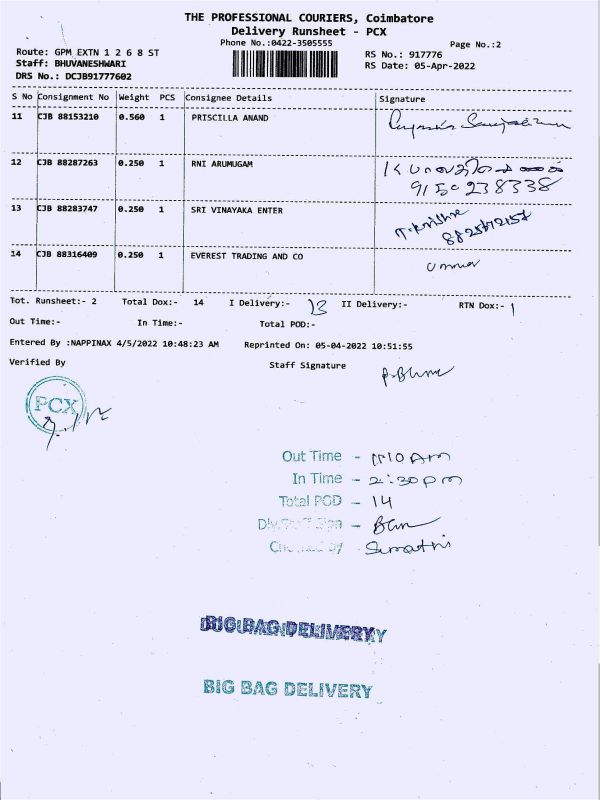 THE PROFESSIONAL COURIERS, Coimbatore
Delivery Runsheet - PCX
Phone No.:0422-3505555
Page No.:2
Route: GPM EXTN 1 2 6 8 ST
Staff: BHUVANESHWARI
DRS No.: DCJB91777602
RS No.: 917776
RS Date: 05-Apr-2022
S No Consignment No Weight PCS Consignee Details Signature
11 CJB 88153210 0.560 1 PRISCILLA ANAND
12 CJB 88287263 0.250 1 RNI ARUMUGAM
9150238338
13 CJB 88283747 0.250 1 SRI VINAYAKA ENTER
14 CJB 88316409 0.250 1 EVEREST TRADING AND CO
Tot. Runsheet:- 2 Total Dox:- 14 I Delivery:- 13 II Delivery:- RTN Dox:- 1
Out Time:- In Time:- Total POD:-
Entered By :NAPPINAX 4/5/2022 10:48:23 AM Reprinted On: 05-04-2022 10:51:55
Verified By Staff Signature
PCX
Out Time - 11:10 Am
In Time - 2:30 pm
Total POD - 14
BIG BAG DELIVERY
BIG BAG DELIVERY